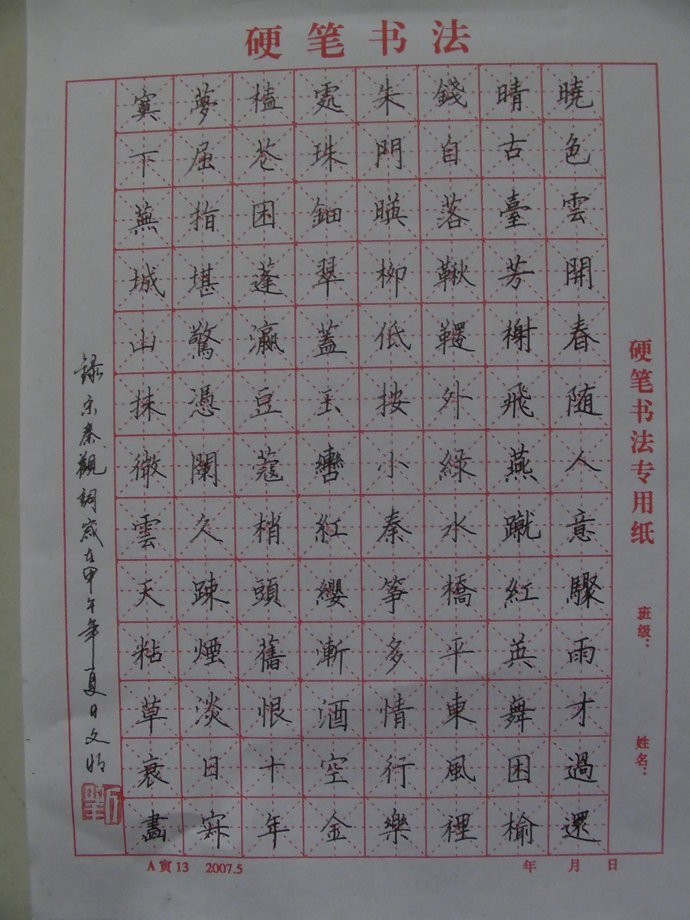 硬笔书法
硬笔书法专用纸
班级：
姓名：
曉色雲開春随人意驟雨才過還
晴古臺芳榭飛燕蹴紅英舞困榆
錢自落鞦韆外綠水橋平東風裡
朱門暎柳低按小秦箏多情行樂
處珠鈿翠蓋玉轡紅纓漸酒空金
榼花困蓬瀛豆蔻梢頭舊恨十年
夢屈指堪驚憑闌久踈煙淡日寂
寞下蕪城山抹微雲天粘草衰畫
錄宋秦觀詞歲在甲午年夏日文
劉
A寅13 2007.5
年 月 日